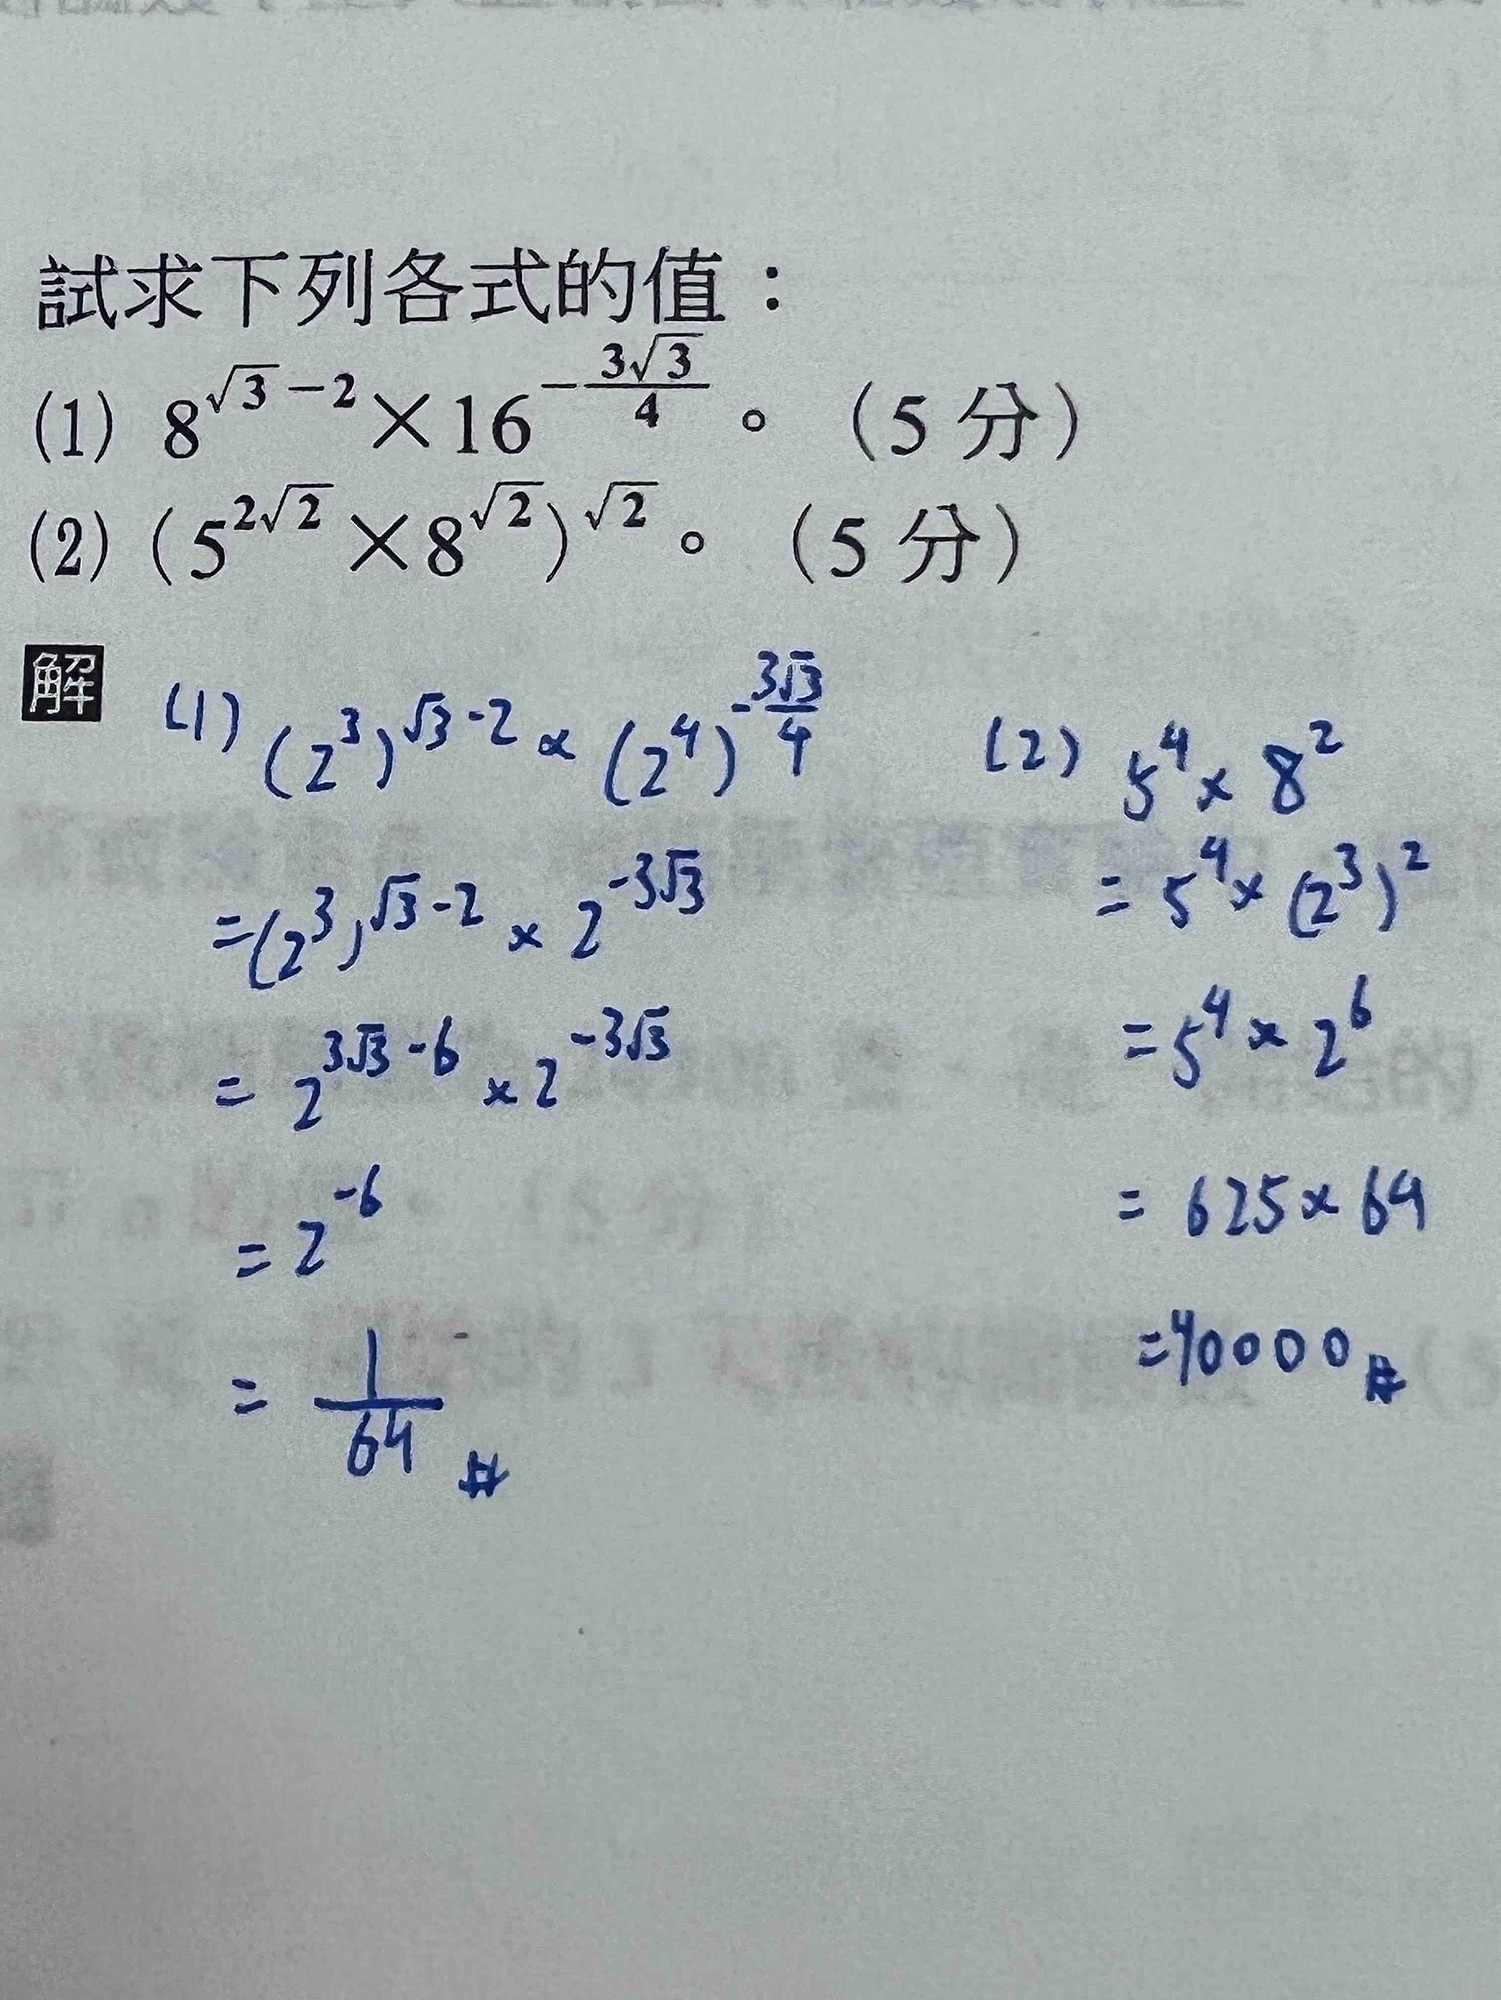 試求下列各式的值：
(1) 8^{√3-2}×16^{-\frac{3√3}{4}}。（5 分）
(2) (5^{2√2}×8^{√2})^{√2}。（5 分）
解
(1) (2^3)^{√3-2} × (2^4)^{-\frac{3√3}{4}}
=(2^3)^{√3-2} × 2^{-3√3}
= 2^{3√3-6} × 2^{-3√3}
= 2^{-6}
= \frac{1}{64} #
(2) 5^4 × 8^2
= 5^4 × (2^3)^2
= 5^4 × 2^6
= 625 × 64
=40000 #